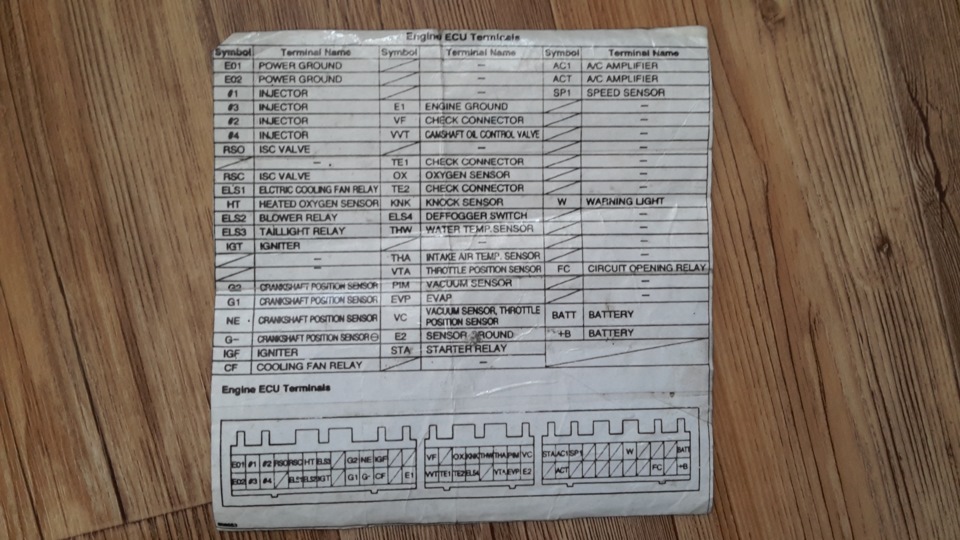 Engine ECU Terminals
Symbol Terminal Name Symbol Terminal Name Symbol Terminal Name
E01 POWER GROUND – AC1 A/C AMPLIFIER
E02 POWER GROUND – ACT A/C AMPLIFIER
#1 INJECTOR – SP1 SPEED SENSOR
#3 INJECTOR E1 ENGINE GROUND –
#2 INJECTOR VF CHECK CONNECTOR –
#4 INJECTOR VVT CAMSHAFT OIL CONTROL VALVE –
RSO ISC VALVE – –
– TE1 CHECK CONNECTOR –
RSC ISC VALVE OX OXYGEN SENSOR –
ELS1 ELCTRIC COOLING FAN RELAY TE2 CHECK CONNECTOR –
HT HEATED OXYGEN SENSOR KNK KNOCK SENSOR W WARNING LIGHT
ELS2 BLOWER RELAY ELS4 DEFFOGGER SWITCH –
ELS3 TAILLIGHT RELAY THW WATER TEMP.SENSOR –
IGT IGNITER – –
– THA INTAKE AIR TEMP. SENSOR –
– VTA THROTTLE POSITION SENSOR FC CIRCUIT OPENING RELAY
G2 CRANKSHAFT POSITION SENSOR PIM VACUUM SENSOR –
G1 CRANKSHAFT POSITION SENSOR EVP EVAP –
NE CRANKSHAFT POSITION SENSOR VC VACUUM SENSOR, THROTTLE POSITION SENSOR BATT BATTERY
G– CRANKSHAFT POSITION SENSOR⊖ E2 SENSOR GROUND +B BATTERY
IGF IGNITER STA STARTER RELAY
CF COOLING FAN RELAY –
Engine ECU Terminals
E01 #1 #2 RSO RSC HT ELS3 G2 NE IGF VF OX KNK THW THA PIM VC STA AC1 SP1 W BATT
E02 #3 #4 ELS1 ELS2 IGT G1 G- CF E1 VVT TE1 TE2 ELS4 VTA EVP E2 ACT FC +B